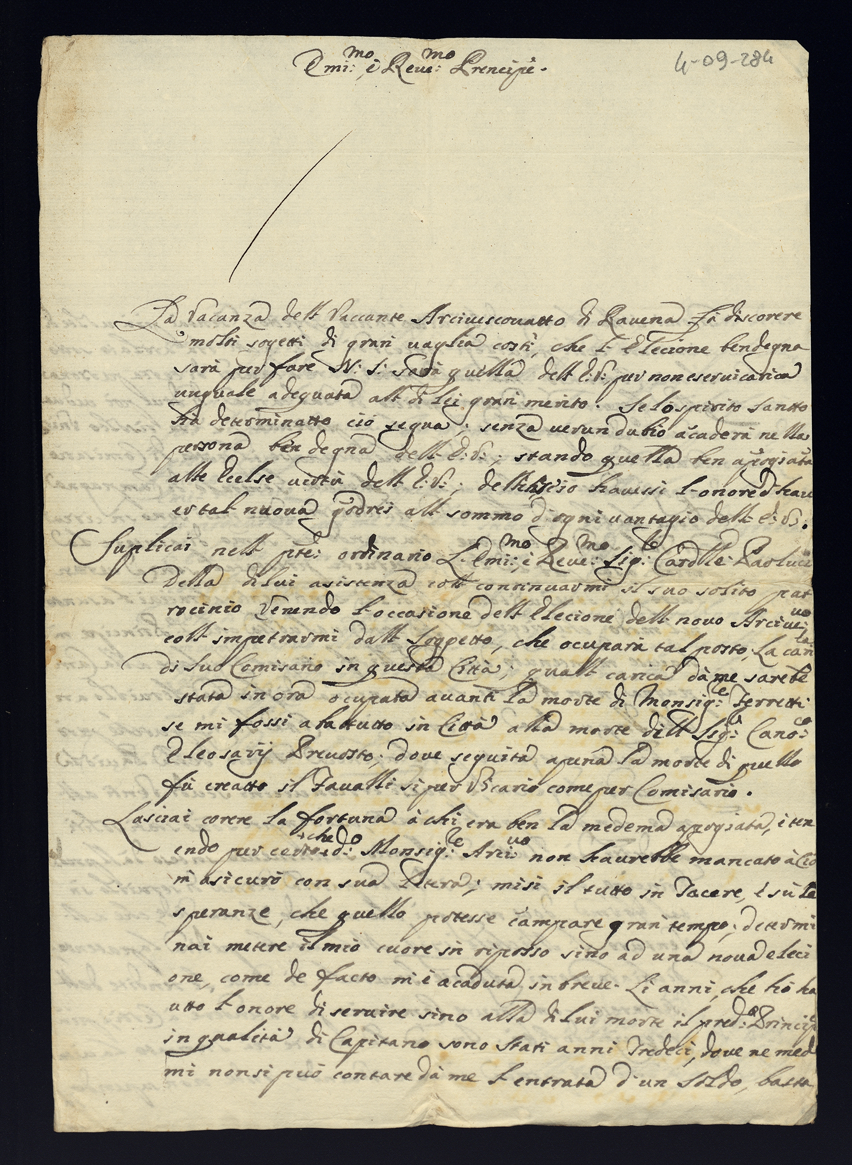 Emi:mo e Reve:mo Prencipe.
4-09-284
La Vacanza dell Vaccante Arcivescovatto di Ravena fà discorere
molti sogetti di gran vaglia costì, che l'Elecione ben degna
sarà per fare N: S: sarà quella dell E:V: per non eservi carica
unquale adeguata all di lei gran merito. Se lo spirito santto
hà determinatto ciò segua; senza verun dubio acaderà nella
persona ben degna dell E:V:; stando quella ben apogiata
alle Ecelse virtù dell E:V:; dell havessi l'onore d'hav
er tal nuova godrei all sommo d'ogni vantagio dell E:V:.
Suplicai nell pte: ordinario L'Emi:mo e Reve:mo Sig:e Cardlle: Paoluci
della di lui asistenza coll continuarmi il suo solito pat
rocinio venendo l'occasione dell Elecione dell novo Arcive:vo
coll impetrarmi dall Soggetto, che ocuparà tal posto, la can:la
di suo Comisario in questa Città; quall carica dà me sarebe
stata in ora ocupata avanti la morte di Monsig:e Ferretti
se mi fossi abattutto in Città alla morte dell Sig:e Cano:co
Eleosarij Prevosto; dove seguita apena la morte di quello
fù creatto il Favalli si per Vicario come per Comisario.
Lasciai corere la fortuna à chi era ben la medema apogiata, e ten
endo per certo che do: Monsig:e Arci:vo non havrebbe mancato à ciò
m'asicurò con sua letera; misi il tutto in Tacere, e sù le
speranze, che quello potesse campare gran tempo; determi
nai metere il mio cuore in riposso sino ad una nova eleci
one, come de facto m'è acaduta in breve. Li anni, che hò ha
utto l'onore di servire sino alla di lui morte il pred:o Princip
in qualità di Capitano sono stati anni Tredeci, dove ne med
mi non si può contare dà me l'entrata d'un soldo, basta